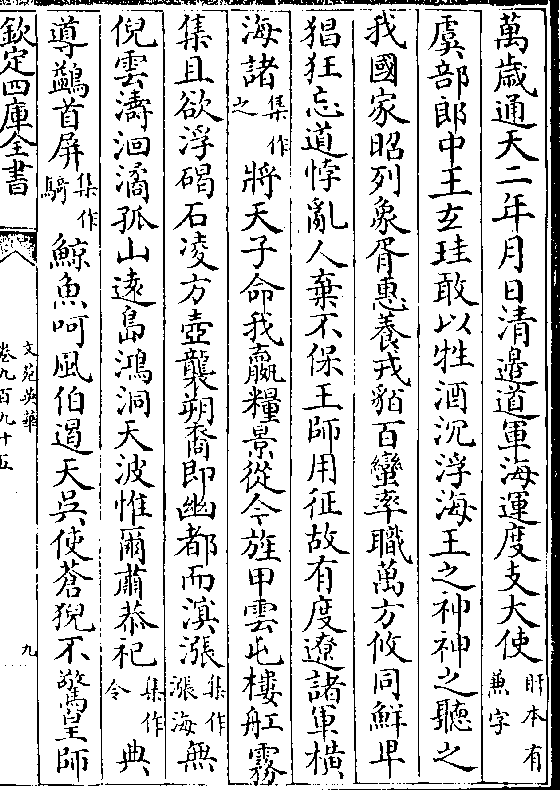 萬歲通天二年月日清邉道軍海運度支大使旴本有兼字
虞部郎中王𤣥珪敢以牲酒沉浮海王之神神之聽之
我國家昭列象胥惠養戎貊百蠻率職萬方攸同鮮卑
猖狂忘道悖亂人棄不保王師用征故有度遼諸軍横
海諸集作之將天子命我羸糧景從今旌甲雲屯樓舡霧
集且欲浮碣石凌方壺襲朔裔即幽都而溟漲集作漲海無
倪雲濤洄潏孤山逺島鴻洞天波惟爾肅恭祀集作令典
導鷁首屏集作騎鯨魚呵風伯遏天吳使蒼猊不驚皇師
欽定四庫全書
文苑英華
卷九百九十五
九